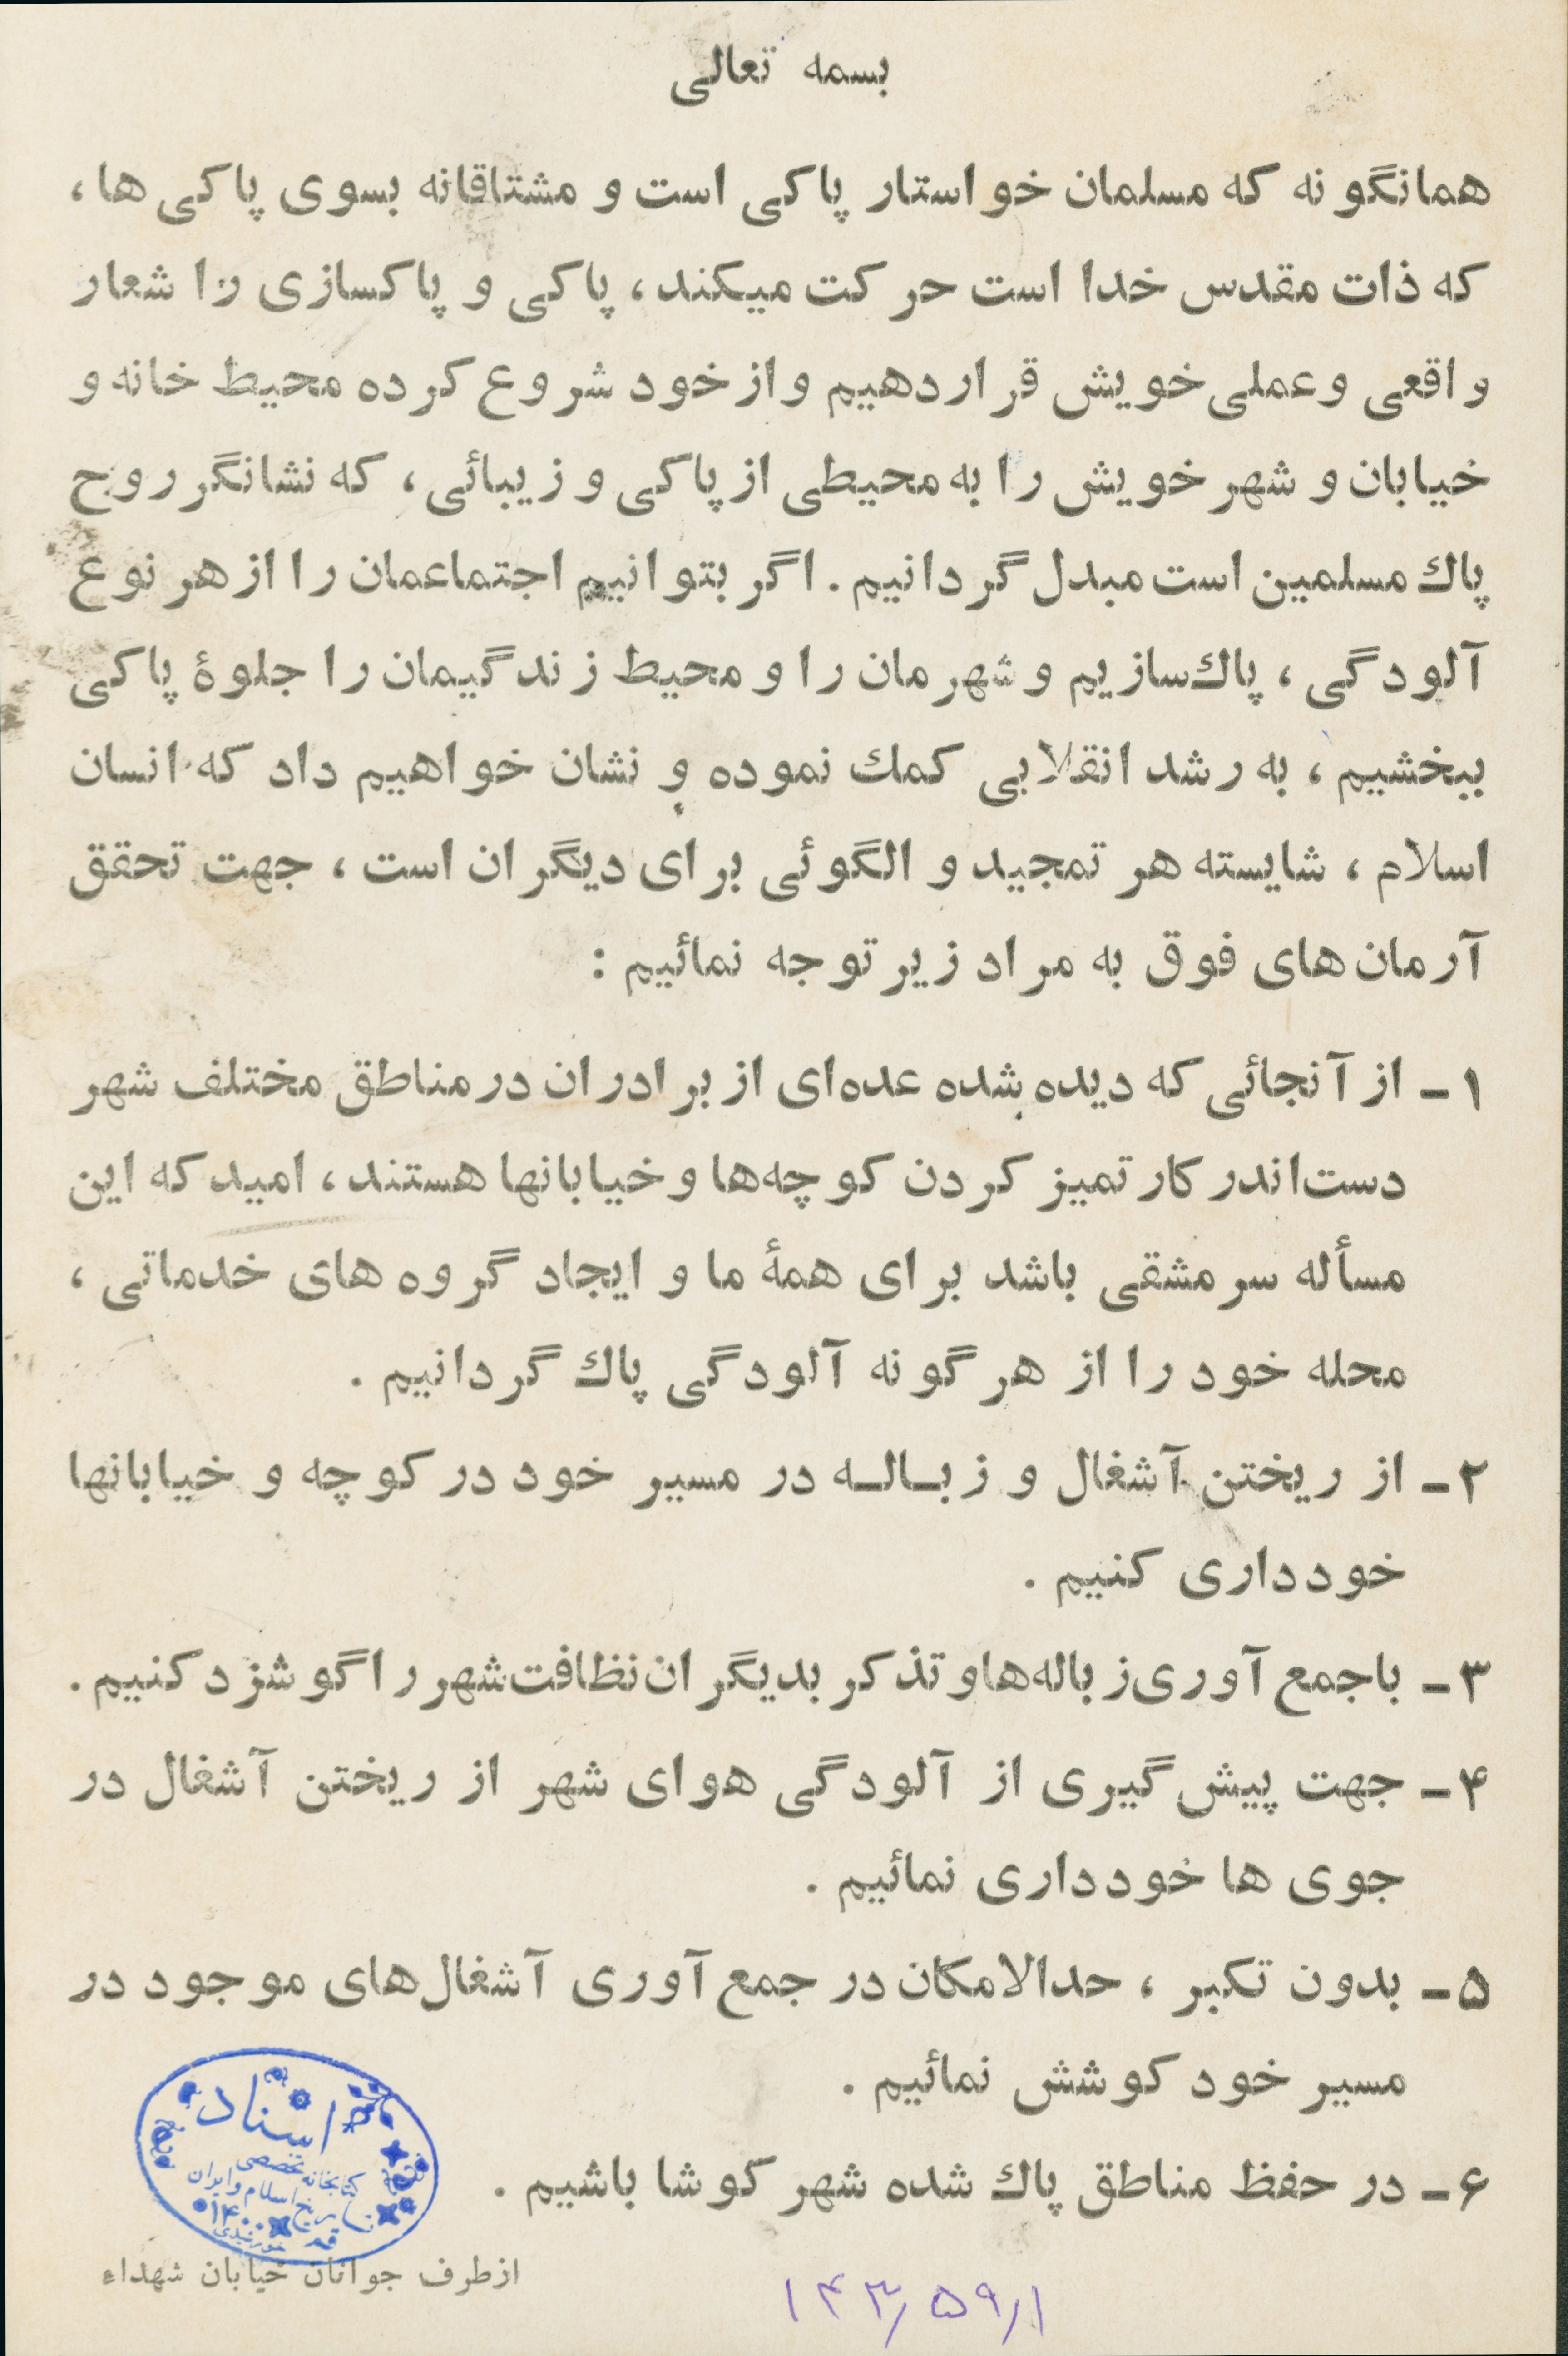 بسمه تعالی
همانگونه که مسلمان خواستار پاکی است و مشتاقانه بسوی پاکی ها،
که ذات مقدس خدا است حرکت میکند، پاکی و پاکسازی را شعار
واقعی و عملی خویش قرار دهیم و از خود شروع کرده محیط خانه و
خیابان و شهر خویش را به محیطی از پاکی و زیبائی، که نشانگر روح
پاك مسلمین است مبدل گردانیم. اگر بتوانیم اجتماعمان را از هر نوع
آلودگی، پاك‌سازیم و شهرمان را و محیط زندگیمان را جلوۀ پاکی
ببخشیم، به رشد انقلابی کمك نموده و نشان خواهیم داد که انسان
اسلام، شایسته هر تمجید و الگوئی برای دیگران است، جهت تحقق
آرمان‌های فوق به مراد زیر توجه نمائیم:
۱- از آنجائی که دیده شده عده‌ای از برادران در مناطق مختلف شهر
دست‌اندر کار تمیز کردن کوچه‌ها و خیابانها هستند، امید که این
مسأله سرمشقی باشد برای همۀ ما و ایجاد گروه های خدماتی،
محله خود را از هر گونه آلودگی پاك گردانیم.
۲- از ریختن آشغال و زبـالـه در مسیر خود در کوچه و خیابانها
خودداری کنیم.
۳- باجمع آوری زباله‌ها و تذکر بدیگران نظافت شهر را گوشزد کنیم.
۴- جهت پیش گیری از آلودگی هوای شهر از ریختن آشغال در
جوی ها خودداری نمائیم.
۵- بدون تکبر، حدالامکان در جمع آوری آشغال‌های موجود در
مسیر خود کوشش نمائیم.
۶- در حفظ مناطق پاك شده شهر کوشا باشیم.
اسناد
کتابخانه تخصصی
تاریخ اسلام و ایران
قم
ازطرف جوانان خیابان شهداء
۱۴۳/۵۹/۱